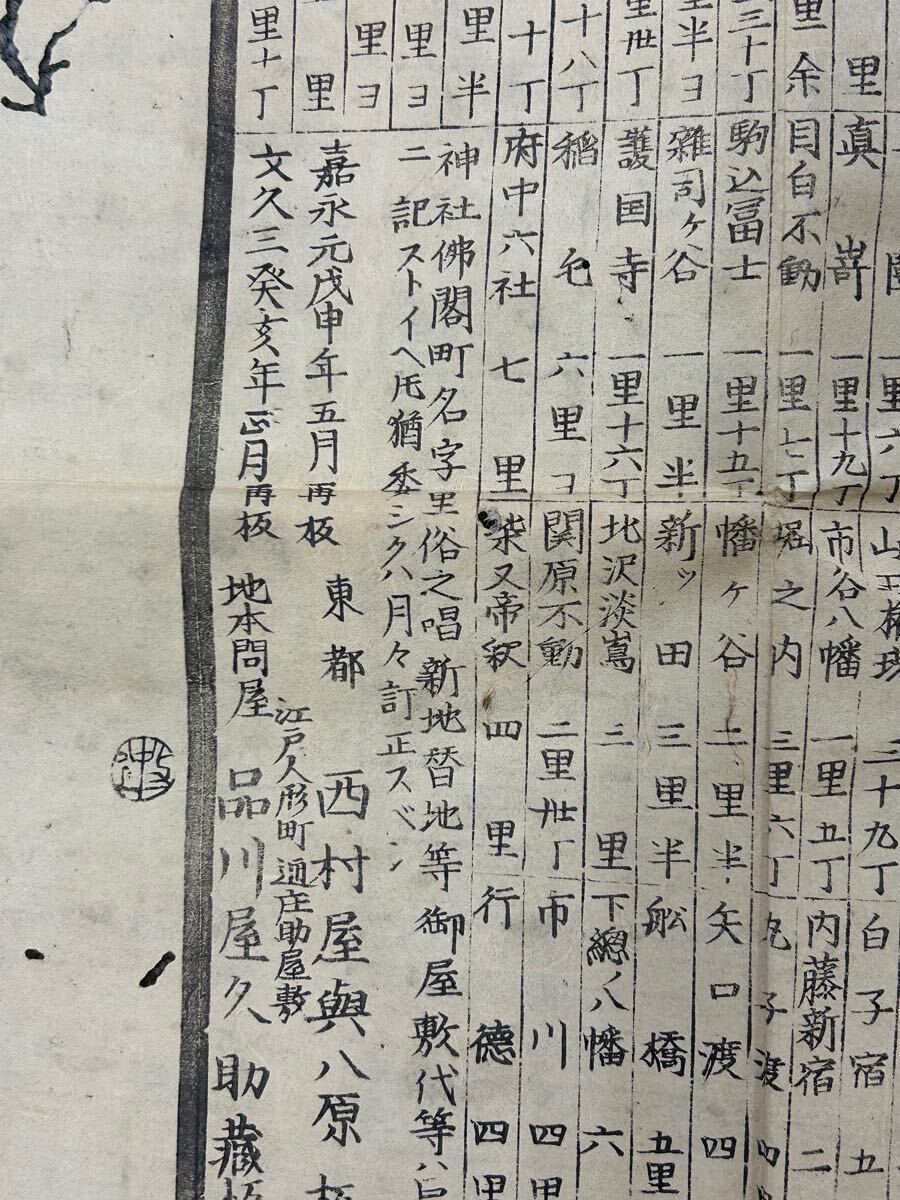 里
園 一里六丁
山王権現 三十九丁
白子宿 五
里余
真嵜 一里十九丁
市ヶ谷八幡 一里五丁
内藤新宿 二
目白不動 一里七丁
堀之内 三里六丁
丸子渡 四里
三十丁
駒込冨士 一里十五丁
幡ヶ谷 二里半
矢口渡 四
里半ヨ
雑司ヶ谷 一里半
新ッ田 三里半
舩橋 五里
里丗丁
護国寺 一里十六丁
北沢淡嶌 三里
下總ノ八幡 六
十八丁
稲毛 六里ヨ
関原不動 二里丗丁
市川 四里
十丁
府中六社 七里
柴又帝釈 四里
行徳 四里
里半
里ヨ
里ヨ
里
里十丁
神社佛閣町名字里俗之唱新地替地等御屋敷代等ハ
ニ記ストイヘ𪜈猶委シクハ月々訂正スベシ
嘉永元戊申年五月再板 東都 西村屋與八原板
江戸人形町通庄助屋敷
文久三癸亥年正月再板 地本問屋 品川屋久助蔵板